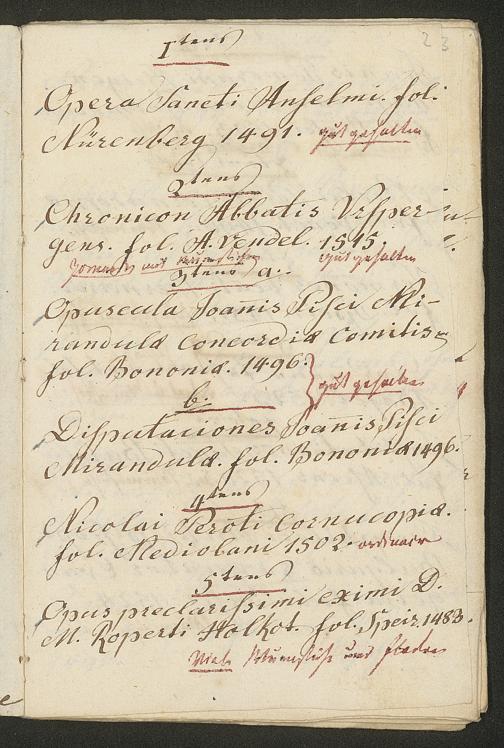 23
1tens
Opera Sancti Anselmi. fol.
Nürenberg 1491. gut gehalten
2tens
Chronicon Abbatis Ursper-
gens. fol. A. Vendel. 1515.
gut gehalten
3tens a.
Opuscula Joānis Pisci Mi-
randulæ Concordiæ Comitis
fol. Bononiæ. 1496.
gut gehalten
b.
Disputaciones Joānis Pisci
Mirandulæ. fol. Bononiæ 1496.
4tens
Nicolai Peroti Cornucopiæ.
fol. Mediobani 1502. ordinaer
5tens
Opus preclarissimi eximi D.
M. Roperti Holkot. fol. Speir. 1483.
Viele und